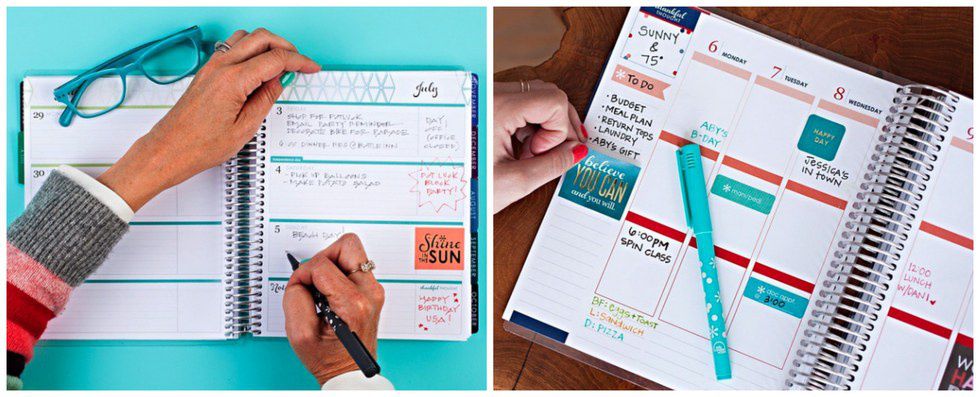 July
29
30
3
SHOP FOR POTLUCK
EMAIL PARTY REMINDER
DECORATE BIKE FOR PARADE
DAY
OFF!
(OFFICE
CLOSED)
4
- PICK UP BALLOONS
- MAKE POTATO SALAD
POT LUCK
BLOCK
PARTY!
5
BEACH DAY!
Shine
IN THE
SUN
thankful THOUGHT
HAPPY
BIRTHDAY
USA!
NOVEMBER
thankful
THOUGHT
SUNNY
&
75°
TO DO
• BUDGET
• MEAL PLAN
• RETURN TOPS
• LAUNDRY
• ABY'S GIFT
believe
YOU CAN
and you will.
6:00PM
SPIN CLASS
BF: EGGS+TOAST
L: SANDWICH
D: PIZZA
6 MONDAY
ABY'S
B-DAY
7 TUESDAY
mani/pedi
8 WEDNESDAY
HAPPY
DAY
JESSICA'S
IN TOWN
doc appt
@ 3:00
9
12:00
LUNCH
W/DANI